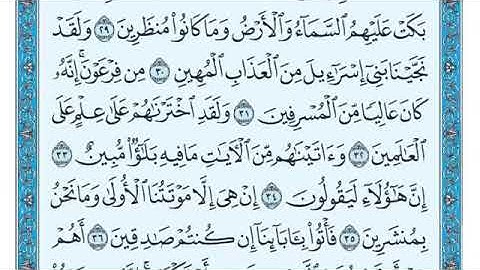 بَكَتْ عَلَيْهِمُ السَّمَاءُ وَالْأَرْضُ وَمَا كَانُوا مُنظَرِينَ ٢٩ وَلَقَدْ
نَجَّيْنَا بَنِي إِسْرَائِيلَ مِنَ الْعَذَابِ الْمُهِينِ ٣٠ مِن فِرْعَوْنَ إِنَّهُ
كَانَ عَالِيًا مِّنَ الْمُسْرِفِينَ ٣١ وَلَقَدِ اخْتَرْنَاهُمْ عَلَىٰ عِلْمٍ عَلَى
الْعَالَمِينَ ٣٢ وَءَاتَيْنَاهُم مِّنَ الْآيَاتِ مَا فِيهِ بَلَاؤٌا مُّبِينٌ ٣٣
إِنَّ هَؤُلَاءِ لَيَقُولُونَ ٣٤ إِنْ هِيَ إِلَّا مَوْتَتُنَا الْأُولَىٰ وَمَا نَحْنُ
بِمُنشَرِينَ ٣٥ فَأْتُوا بِآبَائِنَا إِن كُنتُمْ صَادِقِينَ ٣٦ أَهُمْ